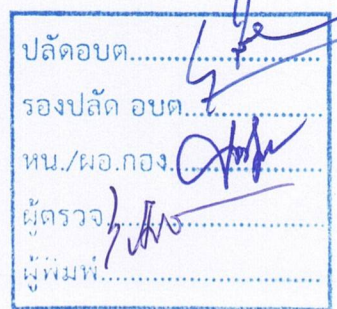 ปลัดอบต.....................
รองปลัด อบต.....................
หน./ผอ.กอง.....................
ผู้ตรวจ.....................
ผู้พิมพ์.....................